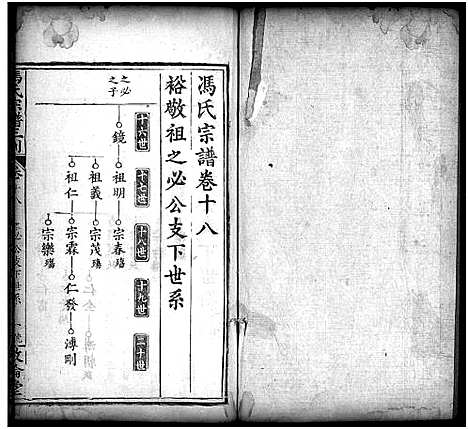 馮氏宗譜卷十八
裕敬祖之必公支下世系
十六世 十七世 十八世 十九世 二十世
之必之子
鏡 祖明 宗春
祖義 宗茂
祖仁 宗霖 仁發 溥剛
宗樂
馮氏宗譜 卷十八 之必公支下世系
敦倫堂